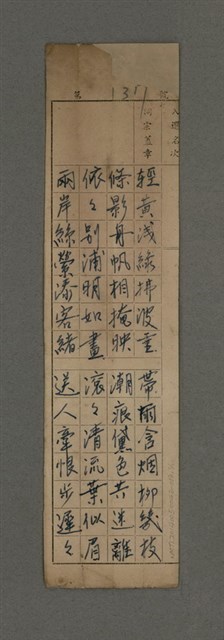 第 131 號
入選名次
詞宗蓋章
輕黃浅綠拂波垂 帶雨含烟柳幾枝
條影舟帆相掩映 潮痕黛色共迷離
依々別浦明如畫 滾々清流葉似眉
兩岸絲縈添客緒 送人牽恨步遲々